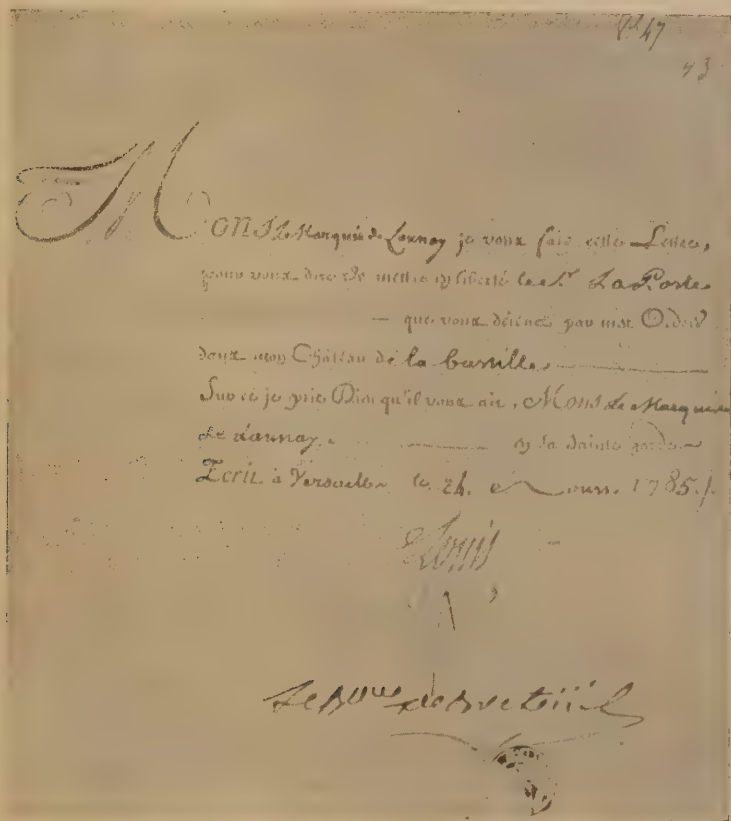 47
Mons. Le Marquis de Launay je vous fais cette Lettre,
pour vous dire de mettre en liberté le S.r La Porte
— que vous détenez par mes Ordres
dans mon Château de la bastille.
Sur ce je prie Dieu qu'il vous ait, Mons. Le Marquis
de Launay, en sa sainte garde.
Ecrit à Versailles le 24. Mars. 1785./.
Louis
Le Bon de Breteüil